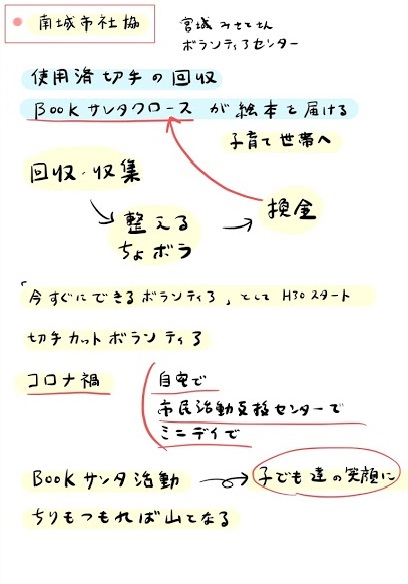 南城市社協
宮城 みさとさん
ボランティアセンター
使用済切手の回収
Bookサンタクロースが絵本を届ける
子育て世帯へ
回収・収集
整える
ちょボラ
換金
「今すぐにできるボランティア」として H30スタート
切手カットボランティア
コロナ禍
自宅で
市民活動支援センターで
ミニデイで
Bookサンタ活動
子ども達の笑顔に
ちりもつもれば山となる